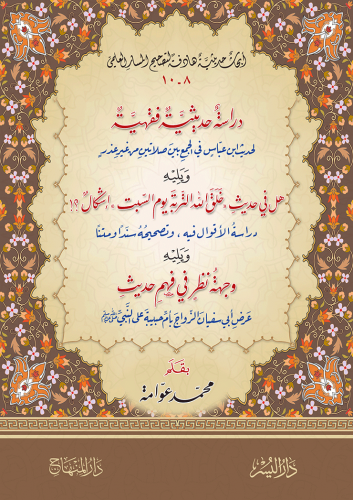 أبحاث حديثية هادفة لتصحيح المسار العلمي
٨-١٠
دراسة حديثية فقهية
لحديث ابن عباس في الجمع بين صلاتين من غير عذر
ويليه
هل في حديث «خلق الله التربة يوم السبت» إشكال؟!
دراسة الأقوال فيه، وتصحيحه سندا ومتنا
ويليه
وجهة نظر في فهم حديث
عرض أبي سفيان الزواج بأم حبيبة على النبي ﷺ
بقلم
محمد عوامة
دار اليسر
دار المنهاج